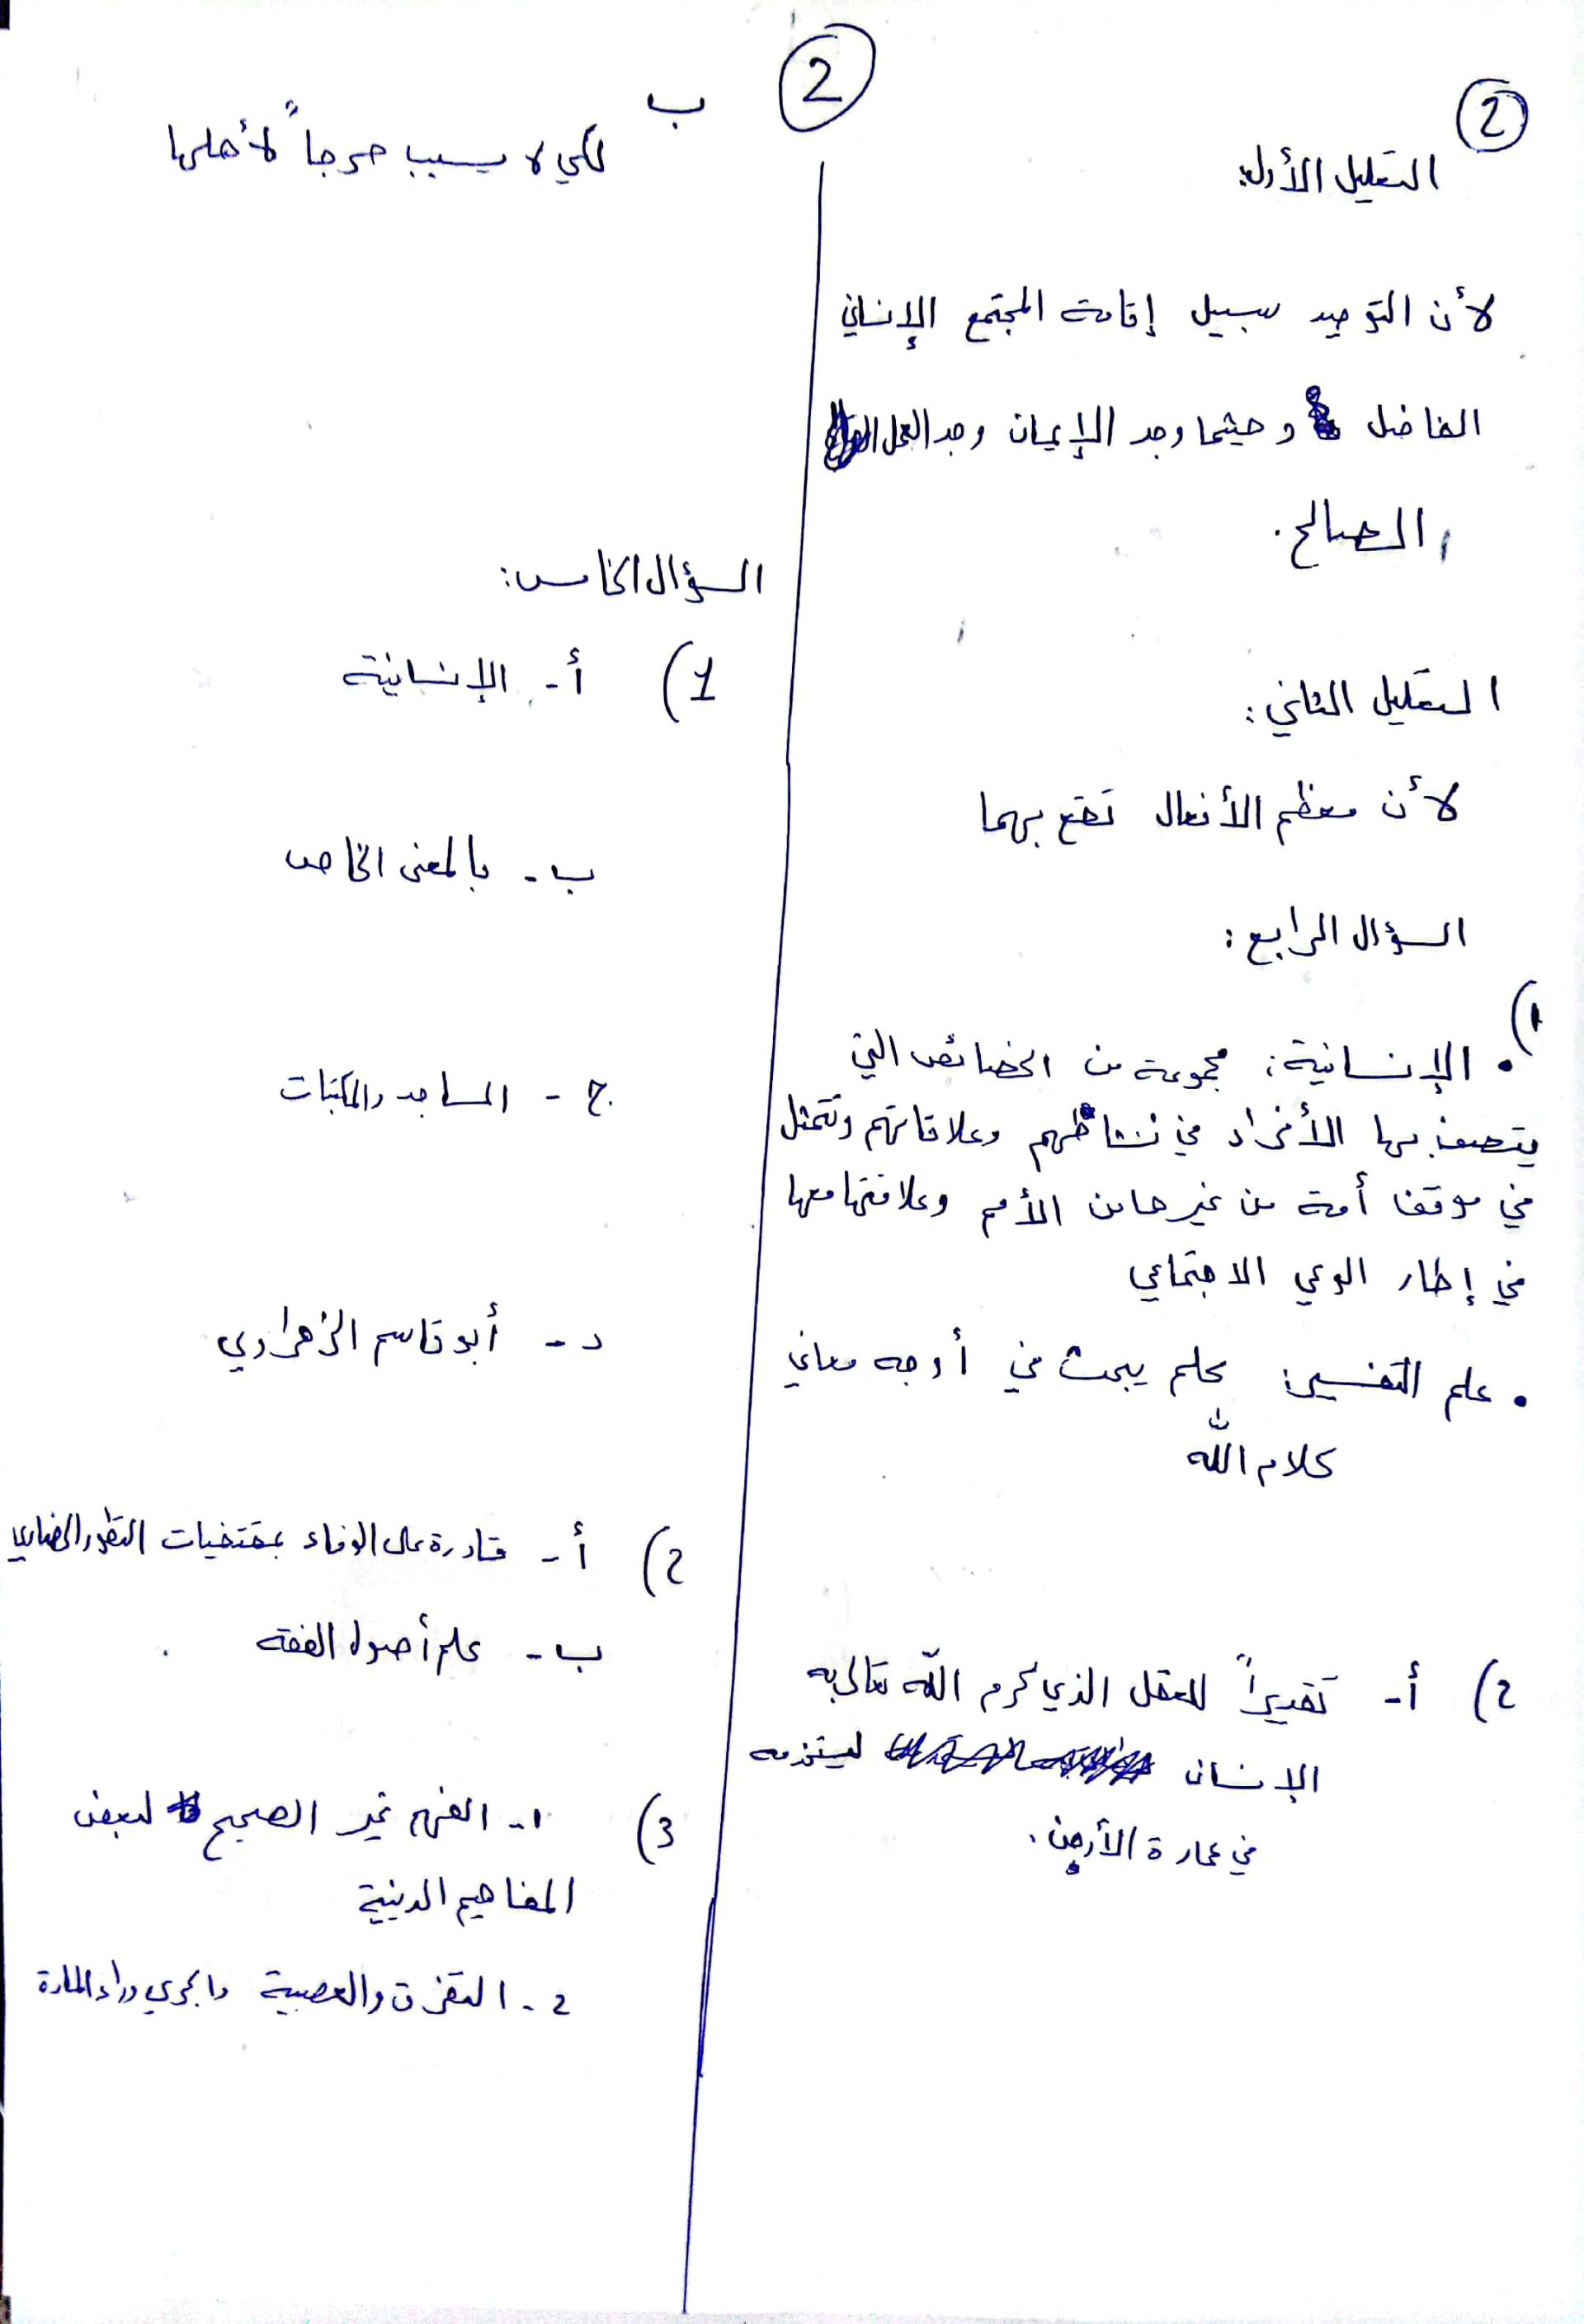 2
2
التعليل الأول:
لأن التوحيد سبيل إقامة المجتمع الإنساني
الفاضل و حيثما وجد الإيمان وجد العمل
الصالح.
التعليل الثاني:
لأن معظم الأفعال تقع بهما
السؤال الرابع:
1)
• الإنسانية: مجموعة من الخصائص التي
يتصف بها الأفراد في نشاطهم وعلاقاتهم وتتمثل
في موقف أمة من غيرها من الأمم وعلاقتها معها
في إطار الوعي الاجتماعي
• علم التفسير: علم يبحث في أوجه معاني
كلام الله
2) أ- تقديراً للعقل الذي كرم الله تعالى به
الإنسان ليستخدمه
في عمارة الأرض.
ب
لكي لا يسبب حرجاً لأهلها
السؤال الخامس:
1) أ- الإنسانية
ب- بالمعنى الخاص
ج- المساجد والمكتبات
د- أبو قاسم الزهراوي
2) أ- قادرة على الوفاء بمقتضيات التطور الحضاري
ب- علم أصول الفقه
3) 1- الفهم غير الصحيح لبعض
المفاهيم الدينية
2- التفرق والعصبية والجري وراء المادة